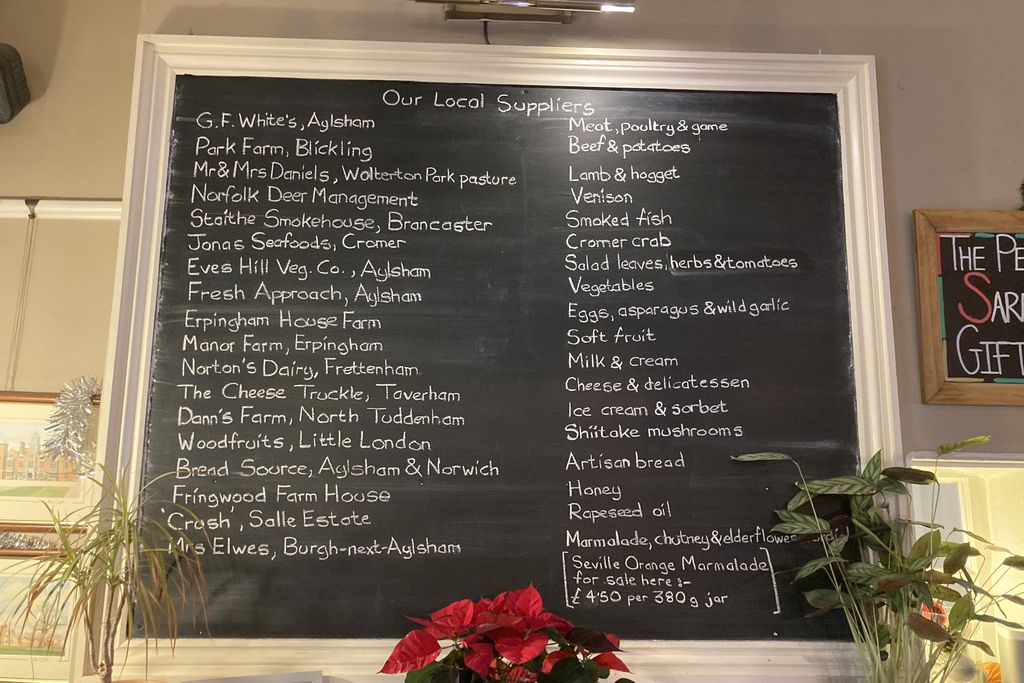 Our Local Suppliers
G.F. White's, Aylsham Meat, poultry & game
Park Farm, Blickling Beef & potatoes
Mr & Mrs Daniels, Wolterton Park pasture Lamb & hogget
Norfolk Deer Management Venison
Staithe Smokehouse, Brancaster Smoked fish
Jonas Seafoods, Cromer Cromer crab
Eves Hill Veg. Co., Aylsham Salad leaves, herbs & tomatoes
Fresh Approach, Aylsham Vegetables
Erpingham House Farm Eggs, asparagus & wild garlic
Manor Farm, Erpingham Soft fruit
Norton's Dairy, Frettenham Milk & cream
The Cheese Truckle, Taverham Cheese & delicatessen
Dann's Farm, North Tuddenham Ice cream & sorbet
Woodfruits, Little London Shiitake mushrooms
Bread Source, Aylsham & Norwich Artisan bread
Fringwood Farm House Honey
'Crush', Salle Estate Rapeseed oil
Mrs Elwes, Burgh-next-Aylsham Marmalade, chutney & elderflower
[Seville Orange Marmalade
for sale here :-
£4'50 per 380g jar]
THE
GIFT